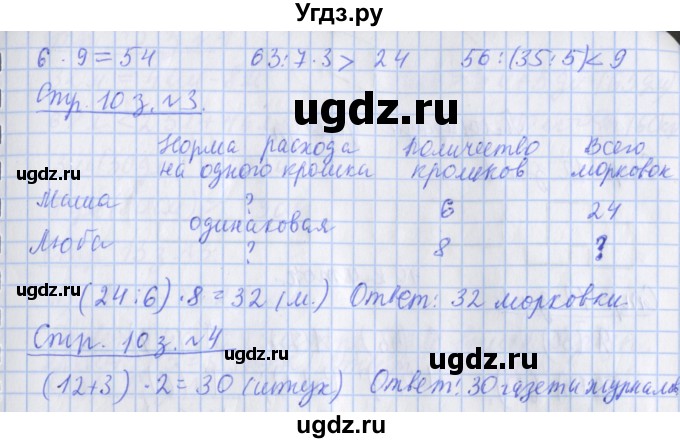 Угдз.ру
6 · 9 = 54 63:7·3 > 24 56:(35:5) < 9
Стр. 10 з. №3.
ugdz.ru
Норма расхода Количество Всего
на одного кролика кроликов морковок
ugdz.ru
ugdz.ru
ugdz.ru
Маша ? 6 24
одинаковая
Люба ? 8 ?
ugdz.ru
ugdz.ru
(24:6)·8=32 (м.) Ответ: 32 морковки.
Стр. 10 з. №4
ugdz.ru
ugdz.ru
(12+3)·2=30 (штук) Ответ: 30 газет и журналов
Угдз.ру